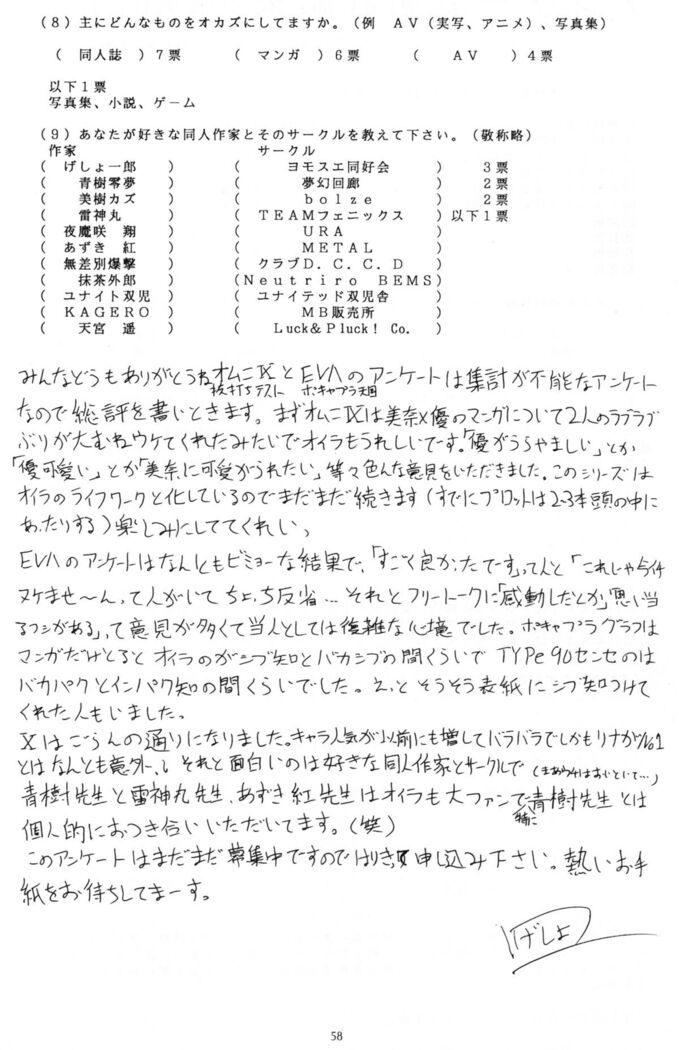 (8)主にどんなものをオカズにしてますか。(例　AV(実写、アニメ)、写真集)
(　同人誌　)7票　(　マンガ　)6票　(　AV　)4票
以下1票
写真集、小説、ゲーム
(9)あなたが好きな同人作家とそのサークルを教えて下さい。(敬称略)
作家　サークル
(　げしょ一郎　)　(　ヨモスエ同好会　)　3票
(　青樹零夢　)　(　夢幻回廊　)　2票
(　美樹カズ　)　(　bolze　)　2票
(　雷神丸　)　(　TEAMフェニックス　)以下1票
(　夜魔咲　翔　)　(　URA　)
(　あずき　紅　)　(　METAL　)
(　無差別爆撃　)　(　クラブD．C．C．D　)
(　抹茶外郎　)　(Neutriro　BEMS)
(　ユナイト双児　)　(　ユナイテッド双児舎　)
(　KAGERO　)　(　MB販売所　)
(　天宮　遥　)　(　Luck&Pluck! Co.　)
みんなどうもありがとうねオムニⅨとEVAのアンケートは集計が不能なアンケート
抜打ちテスト　ボキャブラ天国
なので総評を書いときます。まずオムニⅨは美奈×優のマンガについて2人のラブラブ
ぶりが大むねウケてくれたみたいでオイラもうれしいです。「優がうらやましい」とか
「優可愛い」とか「美奈に可愛がられたい」等々色んな意見をいただきました。このシリーズは
オイラのライフワークと化しているのでまだまだ続きます(すでにプロットは2~3本頭の中に
あったりする)楽しみにしててくれい、
EVAのアンケートはなんともビミョーな結果で、「すごく良かったです」って人と「これじゃあ
ヌケませ～ん」って人がいてちょっち反省… それとフリートークに「感動した」とか「思い当
るフシがある」って意見が多くて当人としては複雑な心境でした。ボキャブラグラフは
マンガだけとるとオイラのがシブ知とバカシブの間くらいでTYPe90センセのは
バカパクとインパク知の間くらいでした。えっとそうそう表紙にシブ知つけて
くれた人もいました。
Ⅹはごらんの通りになりました。キャラ人気が以前にも増してバラバラでしかもリナがNo1
とはなんとも意外、、それと面白いのは好きな同人作家とサークルで
青樹先生と雷神丸先生、あずき紅先生はオイラも大ファンで青樹先生とは
特に
個人的におつき合いいただいてます。(笑)
このアンケートはまだまだ募集中ですのではりきって申し込み下さい。熱いお手
紙をお待ちしてまーす。
げしょ
58